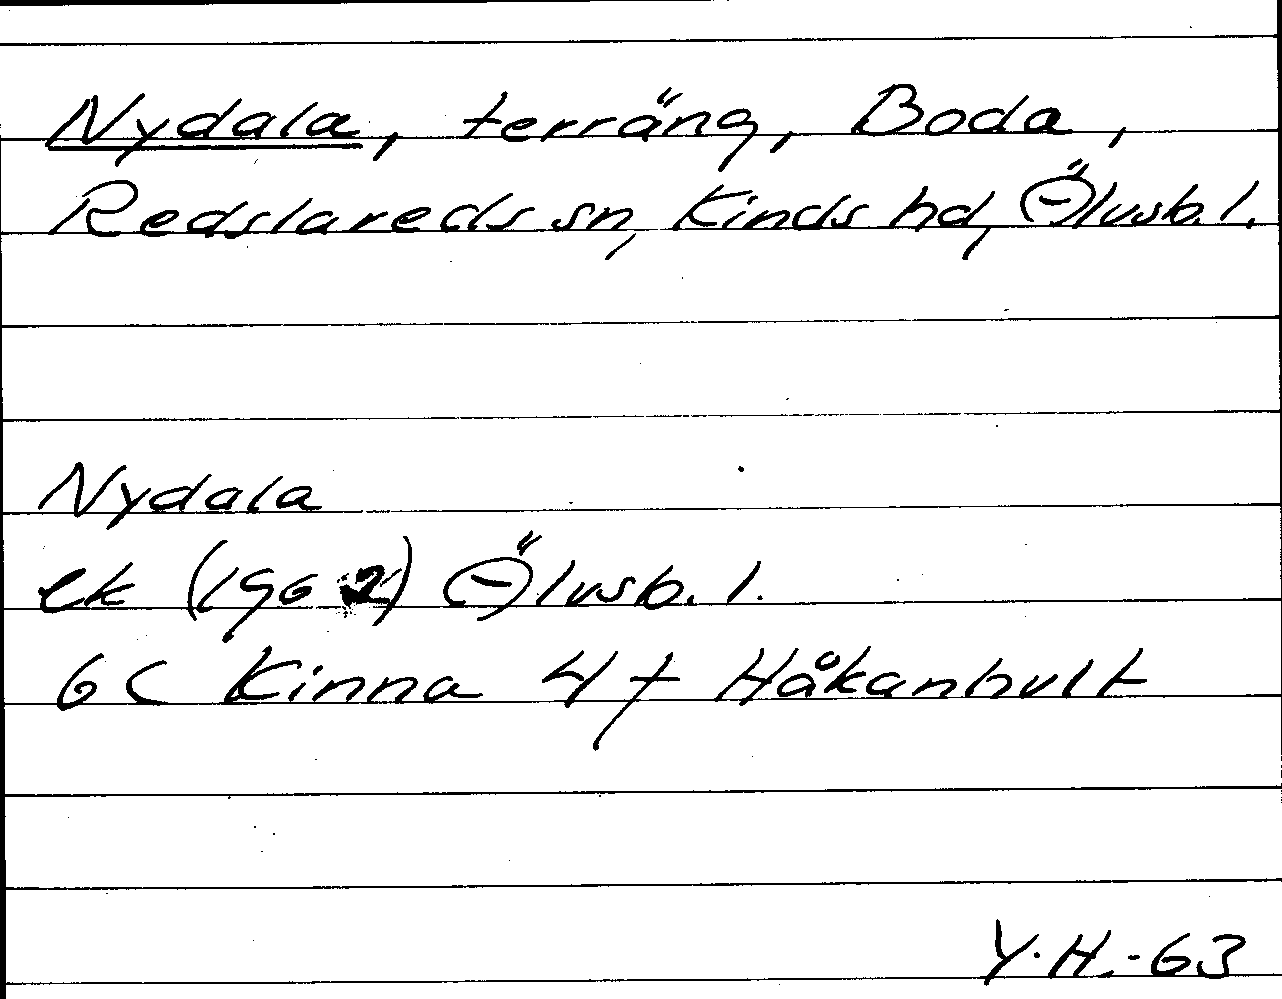 Nydala, terräng, Boda,
Redslareds sn, Kinds hd, Älvsb. l.
Nydala
ek (1962) Älvsb. l.
6C Kinna 4 f Håkanhult
Y.H.-63